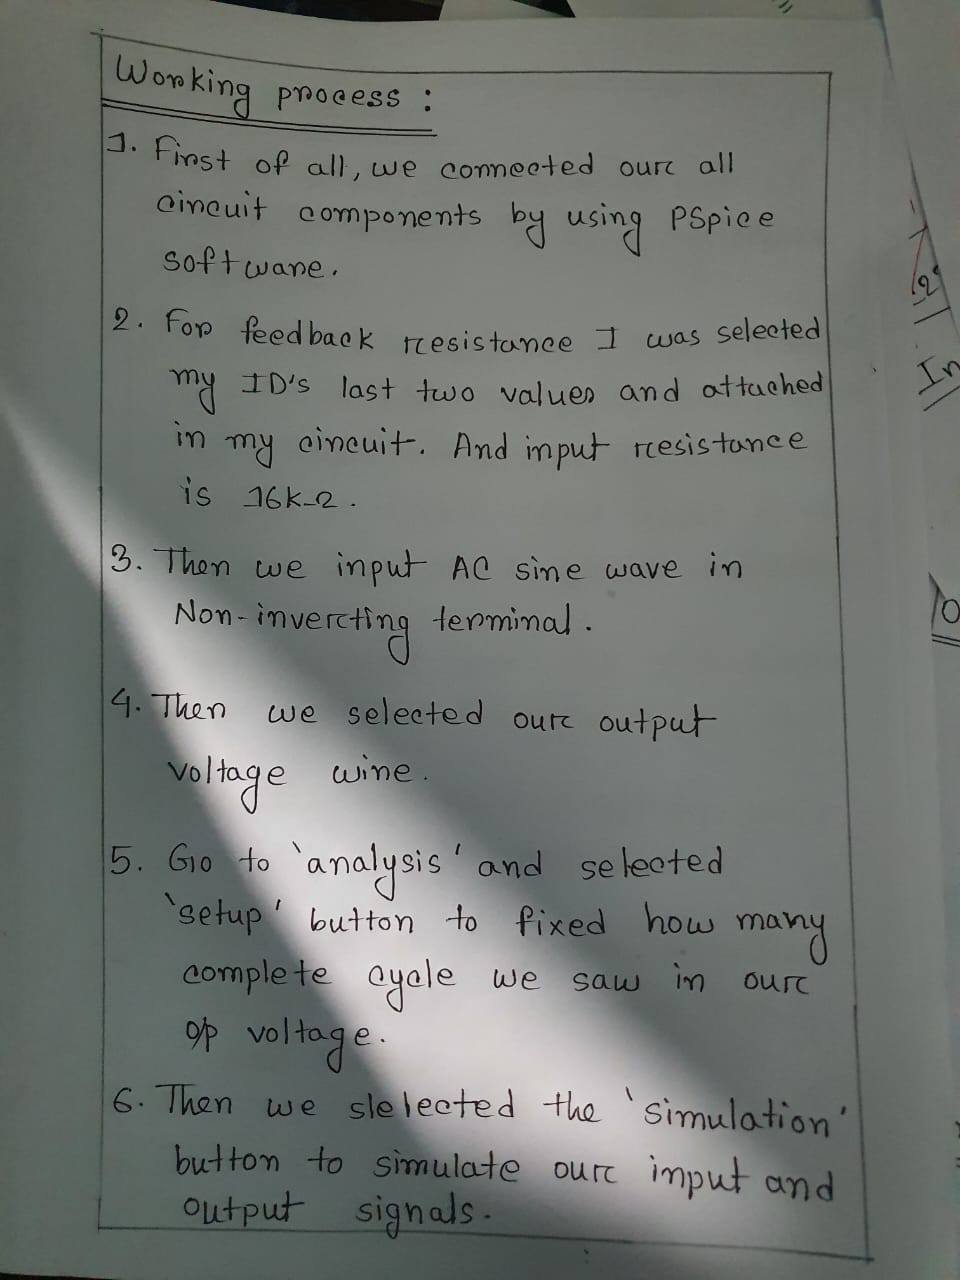 Working process :
1. First of all, we connected our all
circuit components by using PSpice
software.
2. For feedback resistance I was selected
my ID's last two values and attached
in my circuit. And input resistance
is 16kΩ.
3. Then we input AC sine wave in
Non-inverting terminal.
4. Then we selected our output
voltage wire.
5. Go to 'analysis' and selected
'setup' button to fixed how many
complete cycle we saw in our
o/p voltage.
6. Then we slelected the 'simulation'
button to simulate our input and
output signals.
In